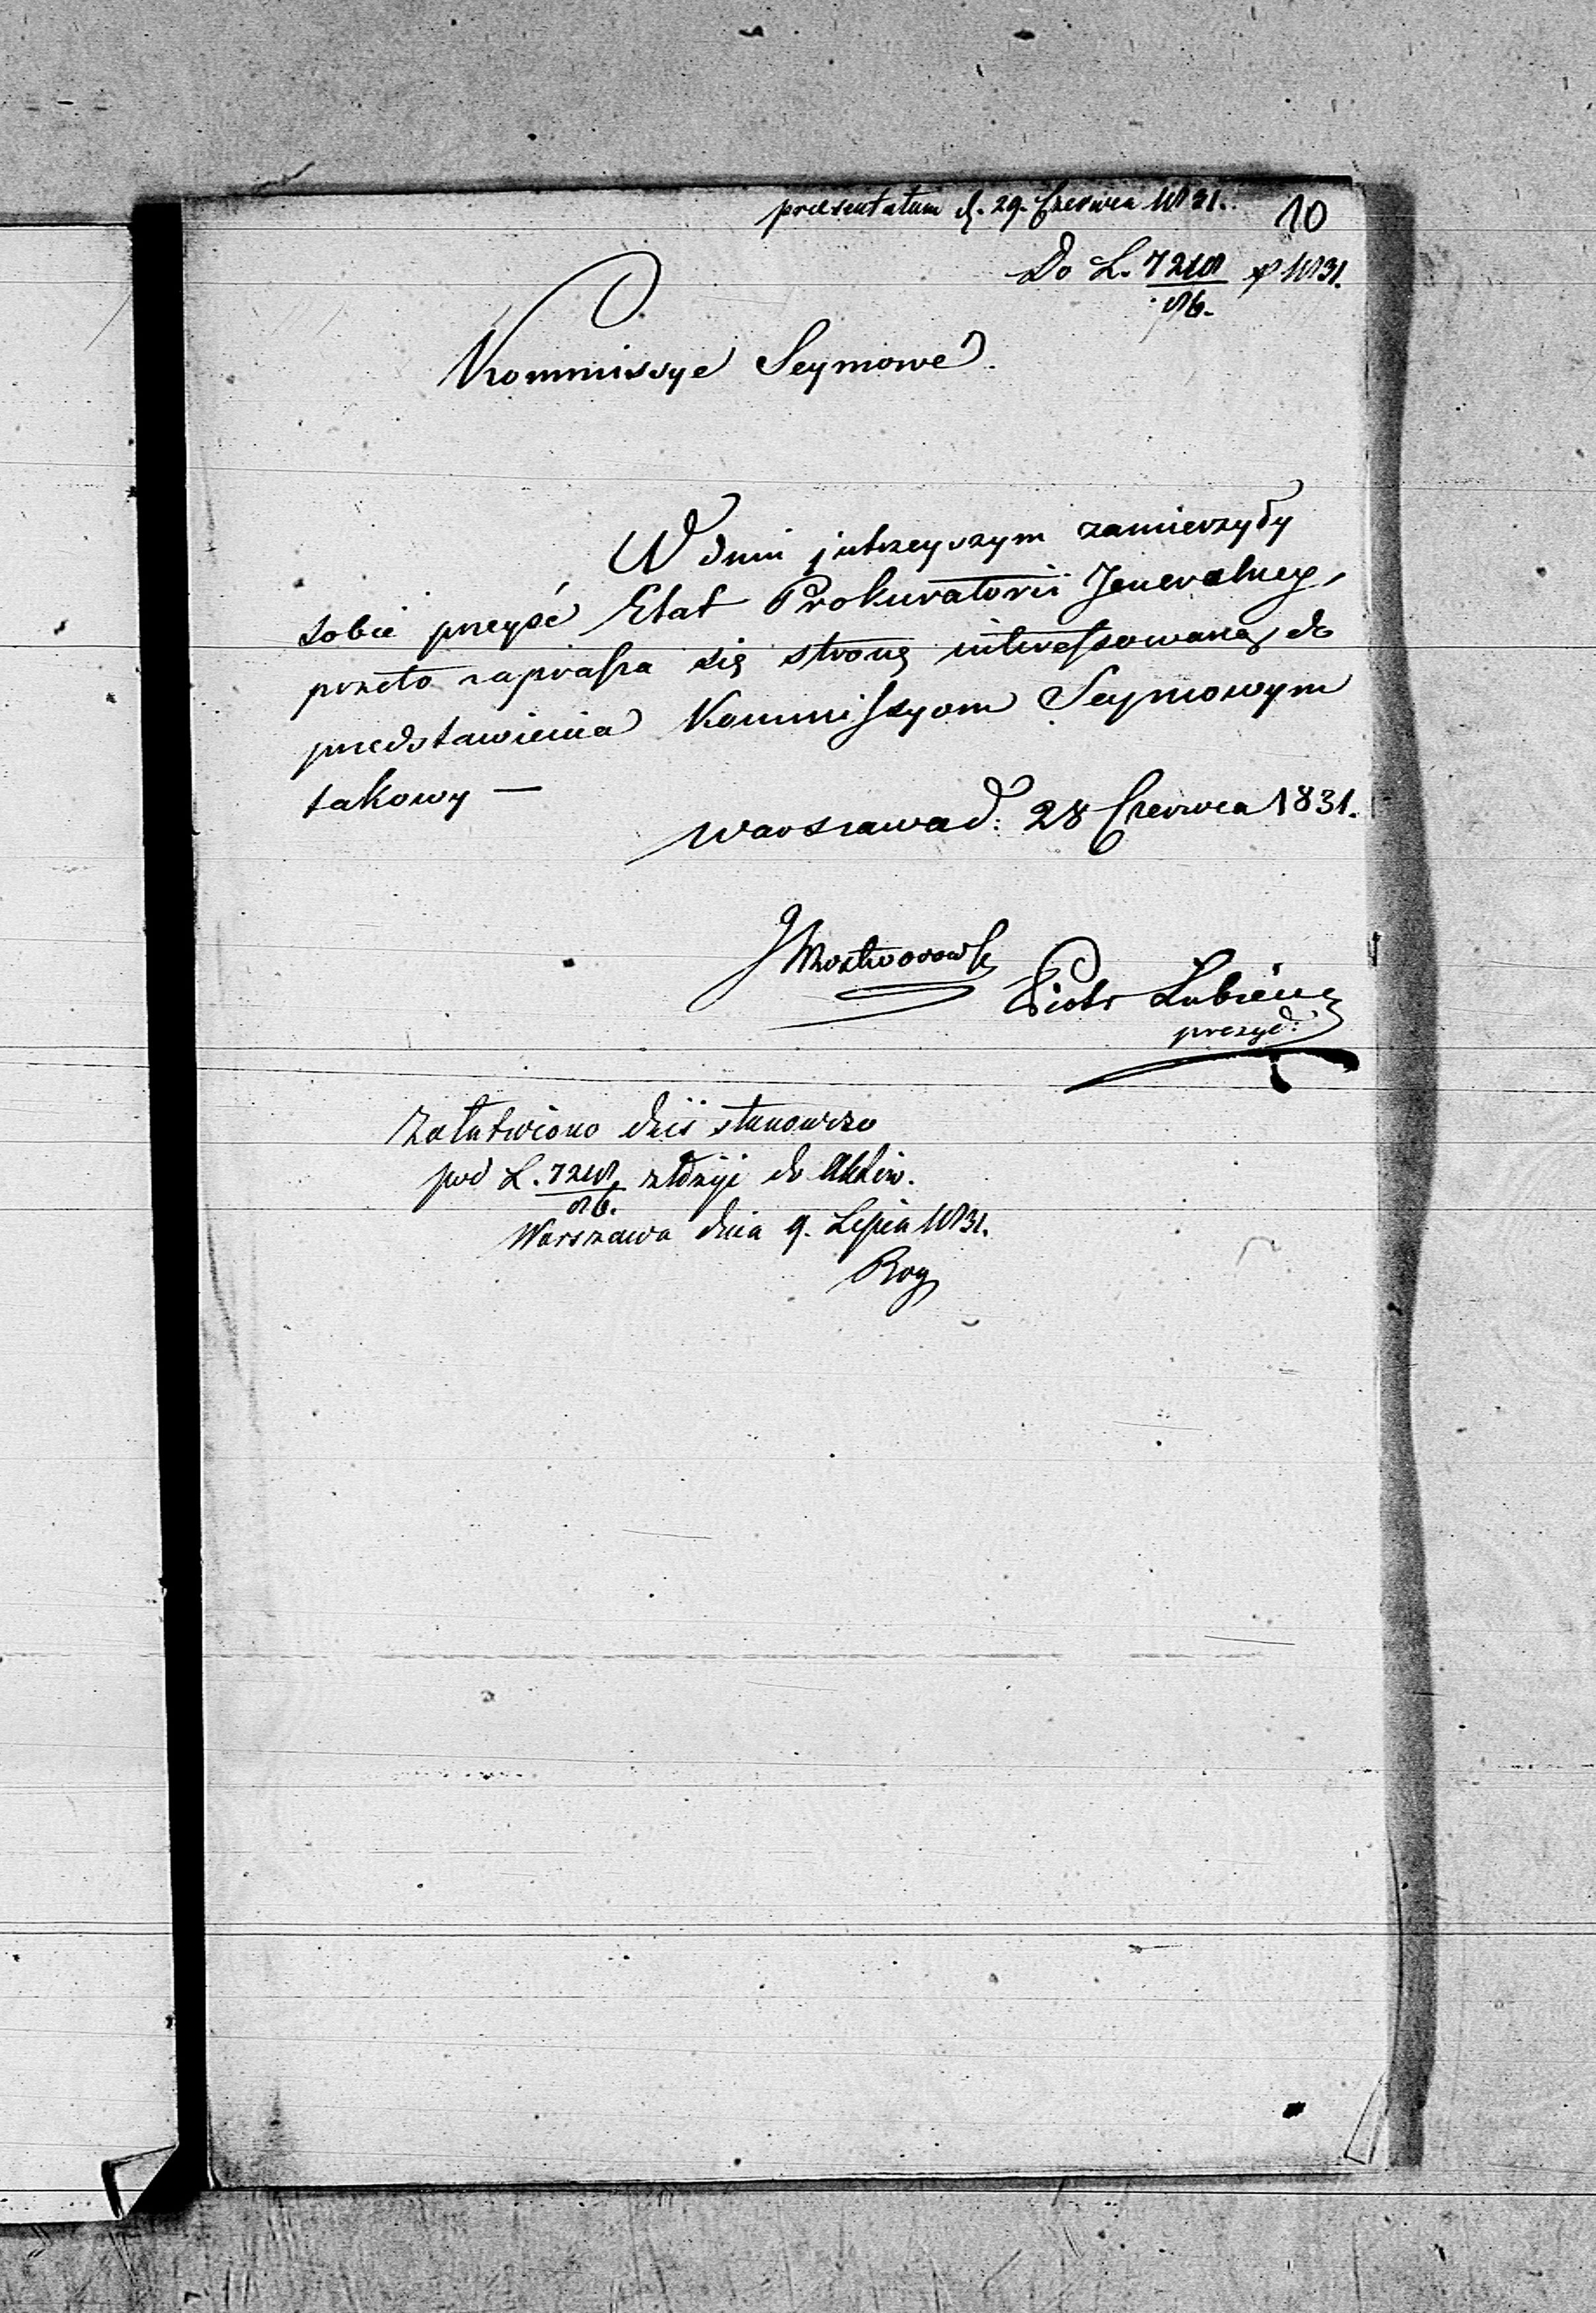 praesentatum d. 29. Czerwca 1831.
10
Do L. 7248/86. 1831.
Kommissye Seymowe.
W dniu jutrzeyszym zamierzyły
sobie przeyść Etat Prokuratorii Jeneralney,
przeto zaprasza się stronę interessowaną do
przedstawienia Kommissyom Seymowym
takowy —
Warszawa d: 28 Czerwca 1831.
Piotr Łubieńs
prezyd:
Załatwiono dziś stanowczo
pod L. 7248/86. złożyć do Aktów.
Warszawa dnia 9. Lipca 1831.